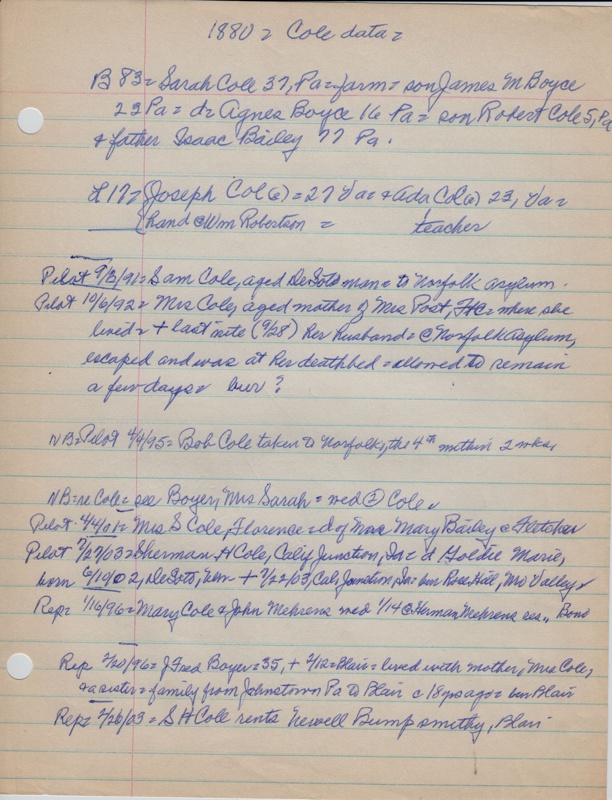 1880 = Cole data =
B 83 = Sarah Cole 37, Pa = farm = son James M Boyce
23 Pa = d = Agnes Boyce 16 Pa = son Robert Cole 5, Pa
+ father Isaac Bailey 77 Pa.
L 17 = Joseph Col(e) = 27 Va = + Ada Col(e) 23, Va =
hand @ Wm Robertson = teacher
Pilot 9/3/91 = Sam Cole, aged DeSoto man = to Norfolk asylum.
Pilot 10/6/92 = Mrs Cole, aged mother of Mrs Post, = where she
lived = + last nite (9/28) Her husband = @ Norfolk Asylum,
escaped and was at her deathbed = allowed to remain
a few days = bur ?
NB = Pilot 4/4/95 = Bob Cole taken to Norfolk, the 4th within 2 wks,
NB = re Cole = see Boyer, Mrs Sarah = wed ② Cole
Pilot 4/4/01 = Mrs S Cole, Florence = d of Mary Bailey @ Fletcher
Pilot 7/27/03 = Sherman H Cole, Calif Junction, Ia = d Goldie Marie,
born 6/19/02, DeSoto, Neb + 7/22/03, Cal Junction, Ia = bur Rose Hill, Mo Valley
Rep = 1/16/96 = Mary Cole & John Mehrens wed 1/14 @ Herman Mehrens res., Bono
Rep 2/20/96 = J Fred Boyer = 35, + 2/12 = Blair = lived with mother, Mrs Cole,
+ a sister = family from Johnstown Pa to Blair c 18 yrs ago = bur Blair
Rep = 2/26/03 = S H Cole rents Newell Bump smithy, Blair